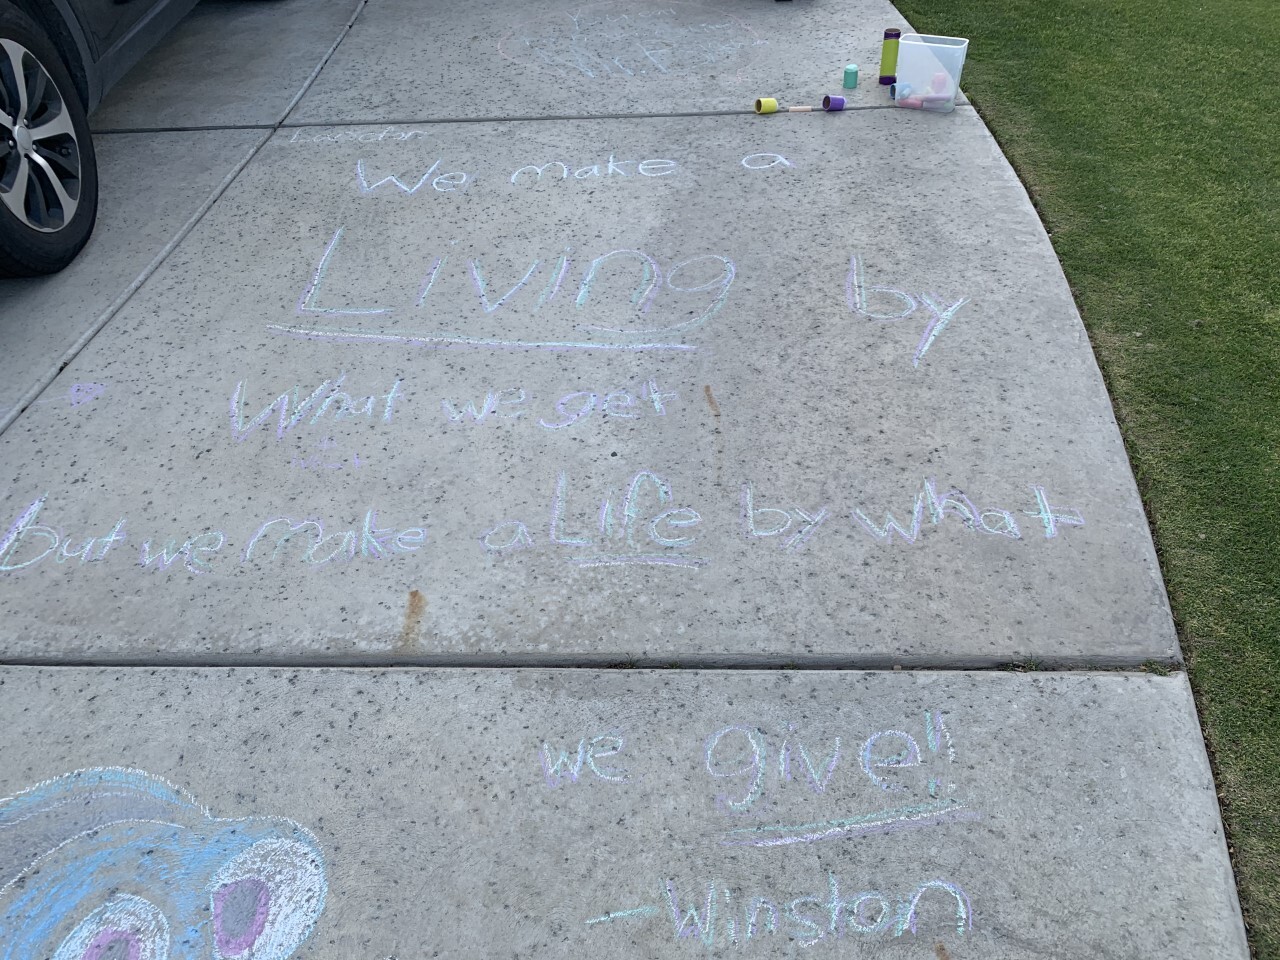 We make a
Living by
What we get
but we make a Life by what
we give!!
-Winston